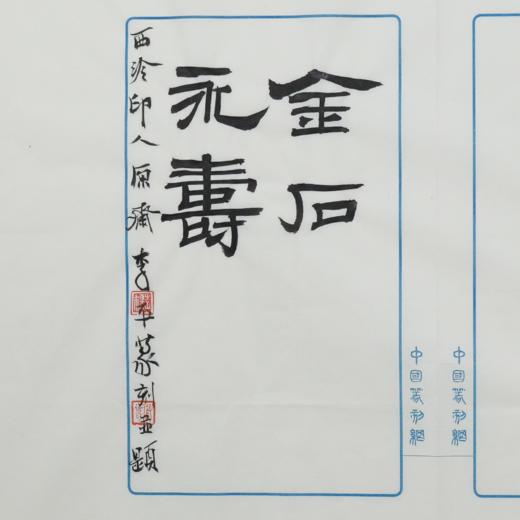 金石
永壽
西泠印人原齋李早篆刻並題
中国篆刻網
中国篆刻網